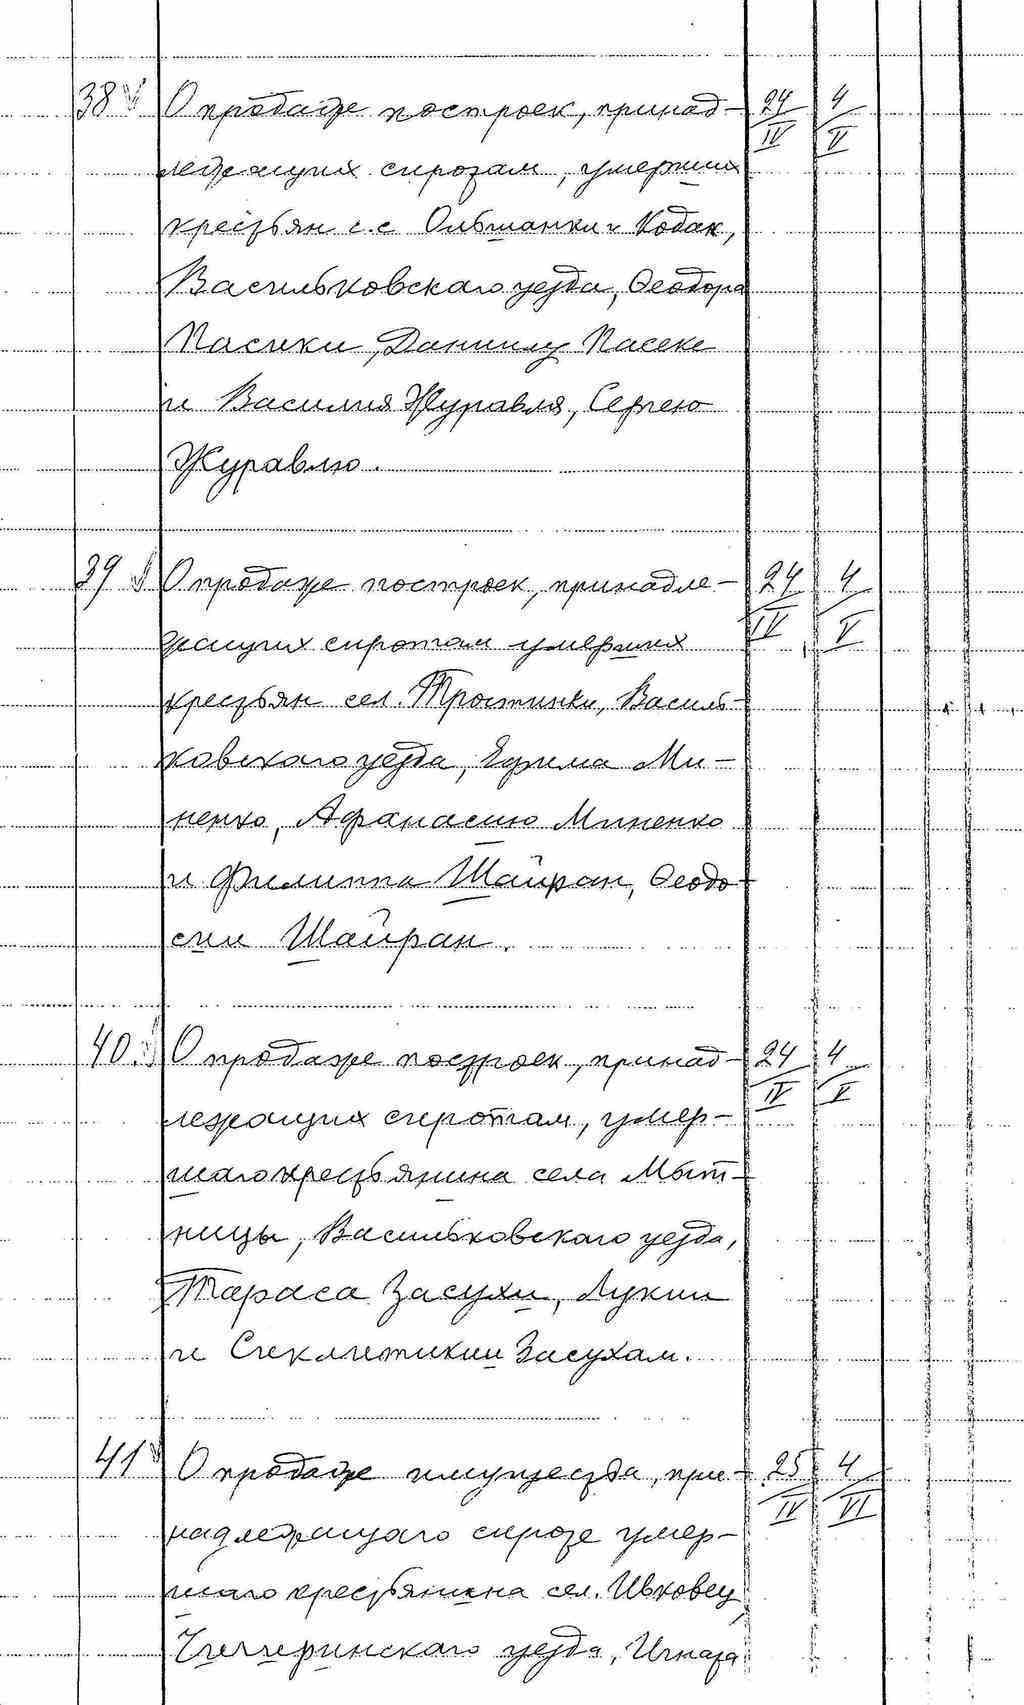 38 О продаже построек, принад- 24/IV 4/V
лежащих сиротам, умерших
крестьян с.с. Ольшанки и Кодак,
Васильковского уезда, Феодора
Пасики, Даниилу Пасеке
и Василия Журавля, Сергею
Журавлю.
39 О продаже построек, принадле- 24/IV 4/V
жащих сиротам умерших
крестьян сел. Тростинки, Василь-
ковского уезда, Ефима Ми-
ненко, Афанасию Миненко
и Филиппа Шайран, Феодо-
сии Шайран.
40 О продаже построек, принад- 24/IV 4/V
лежащих сиротам, умер-
шаго крестьянина села Мыт-
ницы, Васильковского уезда,
Тараса Засухи, Лукии
и Синклитикии Засухам.
41 О продаже имущества, при- 25/IV 4/VI
надлежащаго сироте умер-
шаго крестьянина сел. Ивковец
Чигиринского уезда, Игната